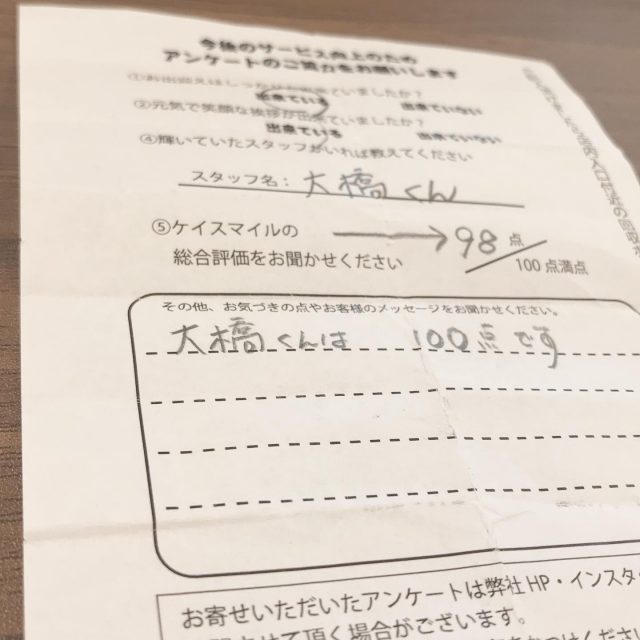 今後のサービス向上のため
アンケートのご協力をお願いします
出来ている 出来ていない
③元気で笑顔な挨拶が出来ていましたか?
出来ている 出来ていない
④輝いていたスタッフがいれば教えてください
スタッフ名: 大橋くん
⑤ケイスマイルの → 98 点
総合評価をお聞かせください / 100点満点
その他、お気づきの点やお客様のメッセージをお聞かせください。
大橋くんは 100点です
お寄せいただいたアンケートは弊社HP・インスタ
させて頂く場合がございます。